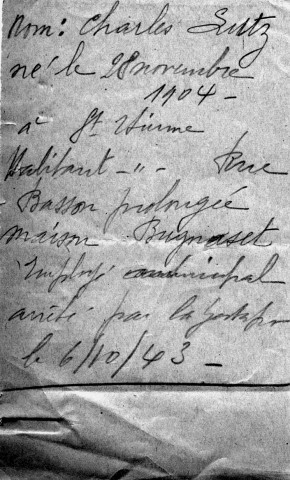 Nom: Charles Lutz
né le 28 novembre
1904 -
à St Etienne
Habitant - " - Rue
Basson prolongée
maison
Employé municipal
arrêté par la gestapo
le 6/10/43 -